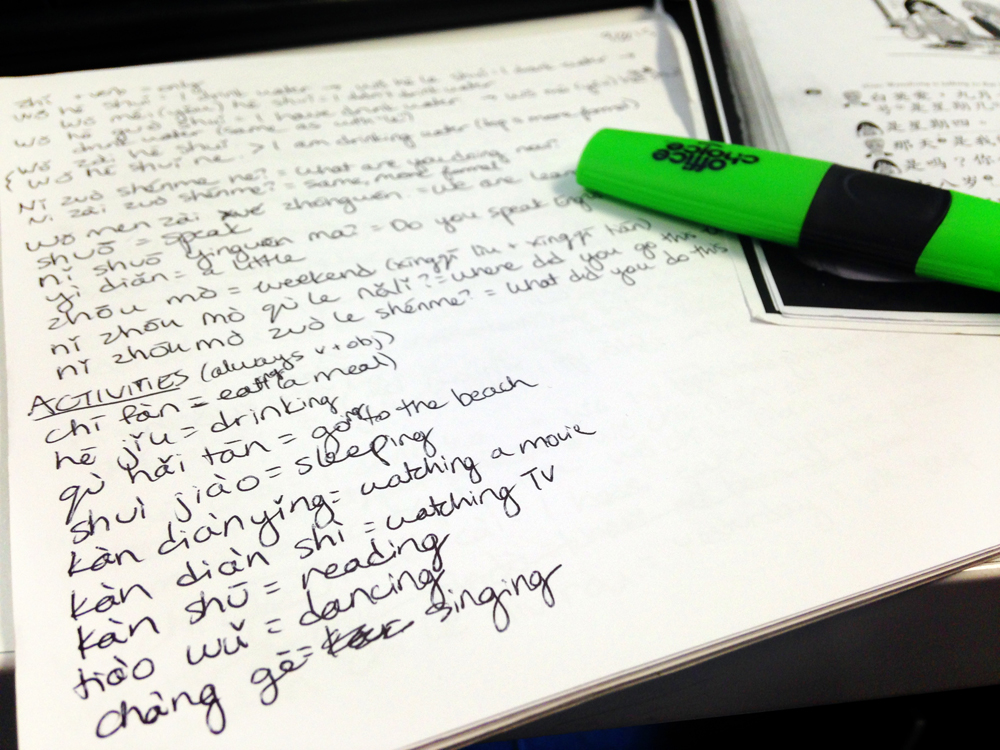 wǒ hē shuǐ = I drink water → wǒ hē le shuǐ = I drank water
wǒ méi (yǒu) hē shuǐ = I don't drink water
hē guo shuǐ = I have drank water
wǒ zài hē shuǐ
wǒ hē shuǐ ne. > I am drinking water (top = more formal)
Nǐ zuò shénme ne? = what are you doing now?
Ni zài zuò shénme? = same, more formal
wǒ men zài xué zhōngwén. = we are
shuō = speak
nǐ shuō yīngwén ma? = Do you speak
yì diǎn = a little
zhōu mò = weekend (xīngqī liù + xīngqī tiān)
nǐ zhōu mò qù le nǎlǐ? = where did you go this
nǐ zhōu mò zuò le shénme? = what did you do this
ACTIVITIES (always v + obj)
chī fàn = eating (a meal)
hē jǐu = drinking
qù hǎi tān = going to the beach
shuì jiào = sleeping
kàn diànyǐng = watching a movie
kàn diàn shì = watching TV
kàn shū = reading
tiào wǔ = dancing
chàng gē = singing
office
choice
白英爱，九月
是星期四。
那天是我
是吗？你
八岁。